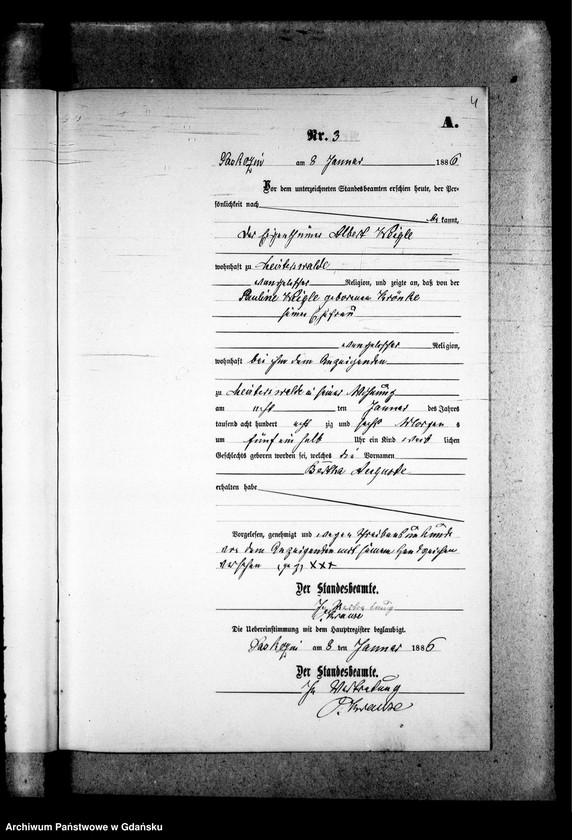 4
A.
Nr. 3
am 8 Januar 1886
Vor dem unterzeichneten Standesbeamten erschien heute, der Per-
sönlichkeit nach
be kannt,
der Eigenthümer Albert Weigle
wohnhaft zu
evangelischer Religion, und zeigte an, daß von der
Pauline Weigle geborenen Krönke
seiner Ehefrau
evangelischer Religion,
wohnhaft bei ihm dem Anzeigenden
zu in seiner Wohnung
am acht ten Januar des Jahres
tausend acht hundert acht zig und sechs Morgens
um fünf ein halb Uhr ein Kind weib lichen
Geschlechts geboren worden sei, welches die Vornamen
Bertha Auguste
erhalten habe
Vorgelesen, genehmigt und wegen Schreibensunkunde
von dem Anzeigenden mit seinem Handzeichen
versehen gez. XXX
Der Standesbeamte.
In Vertretung
Krause
Die Uebereinstimmung mit dem Hauptregister beglaubigt.
am 8 ten Januar 1886
Der Standesbeamte.
In Vertretung
Krause
Archiwum Państwowe w Gdańsku